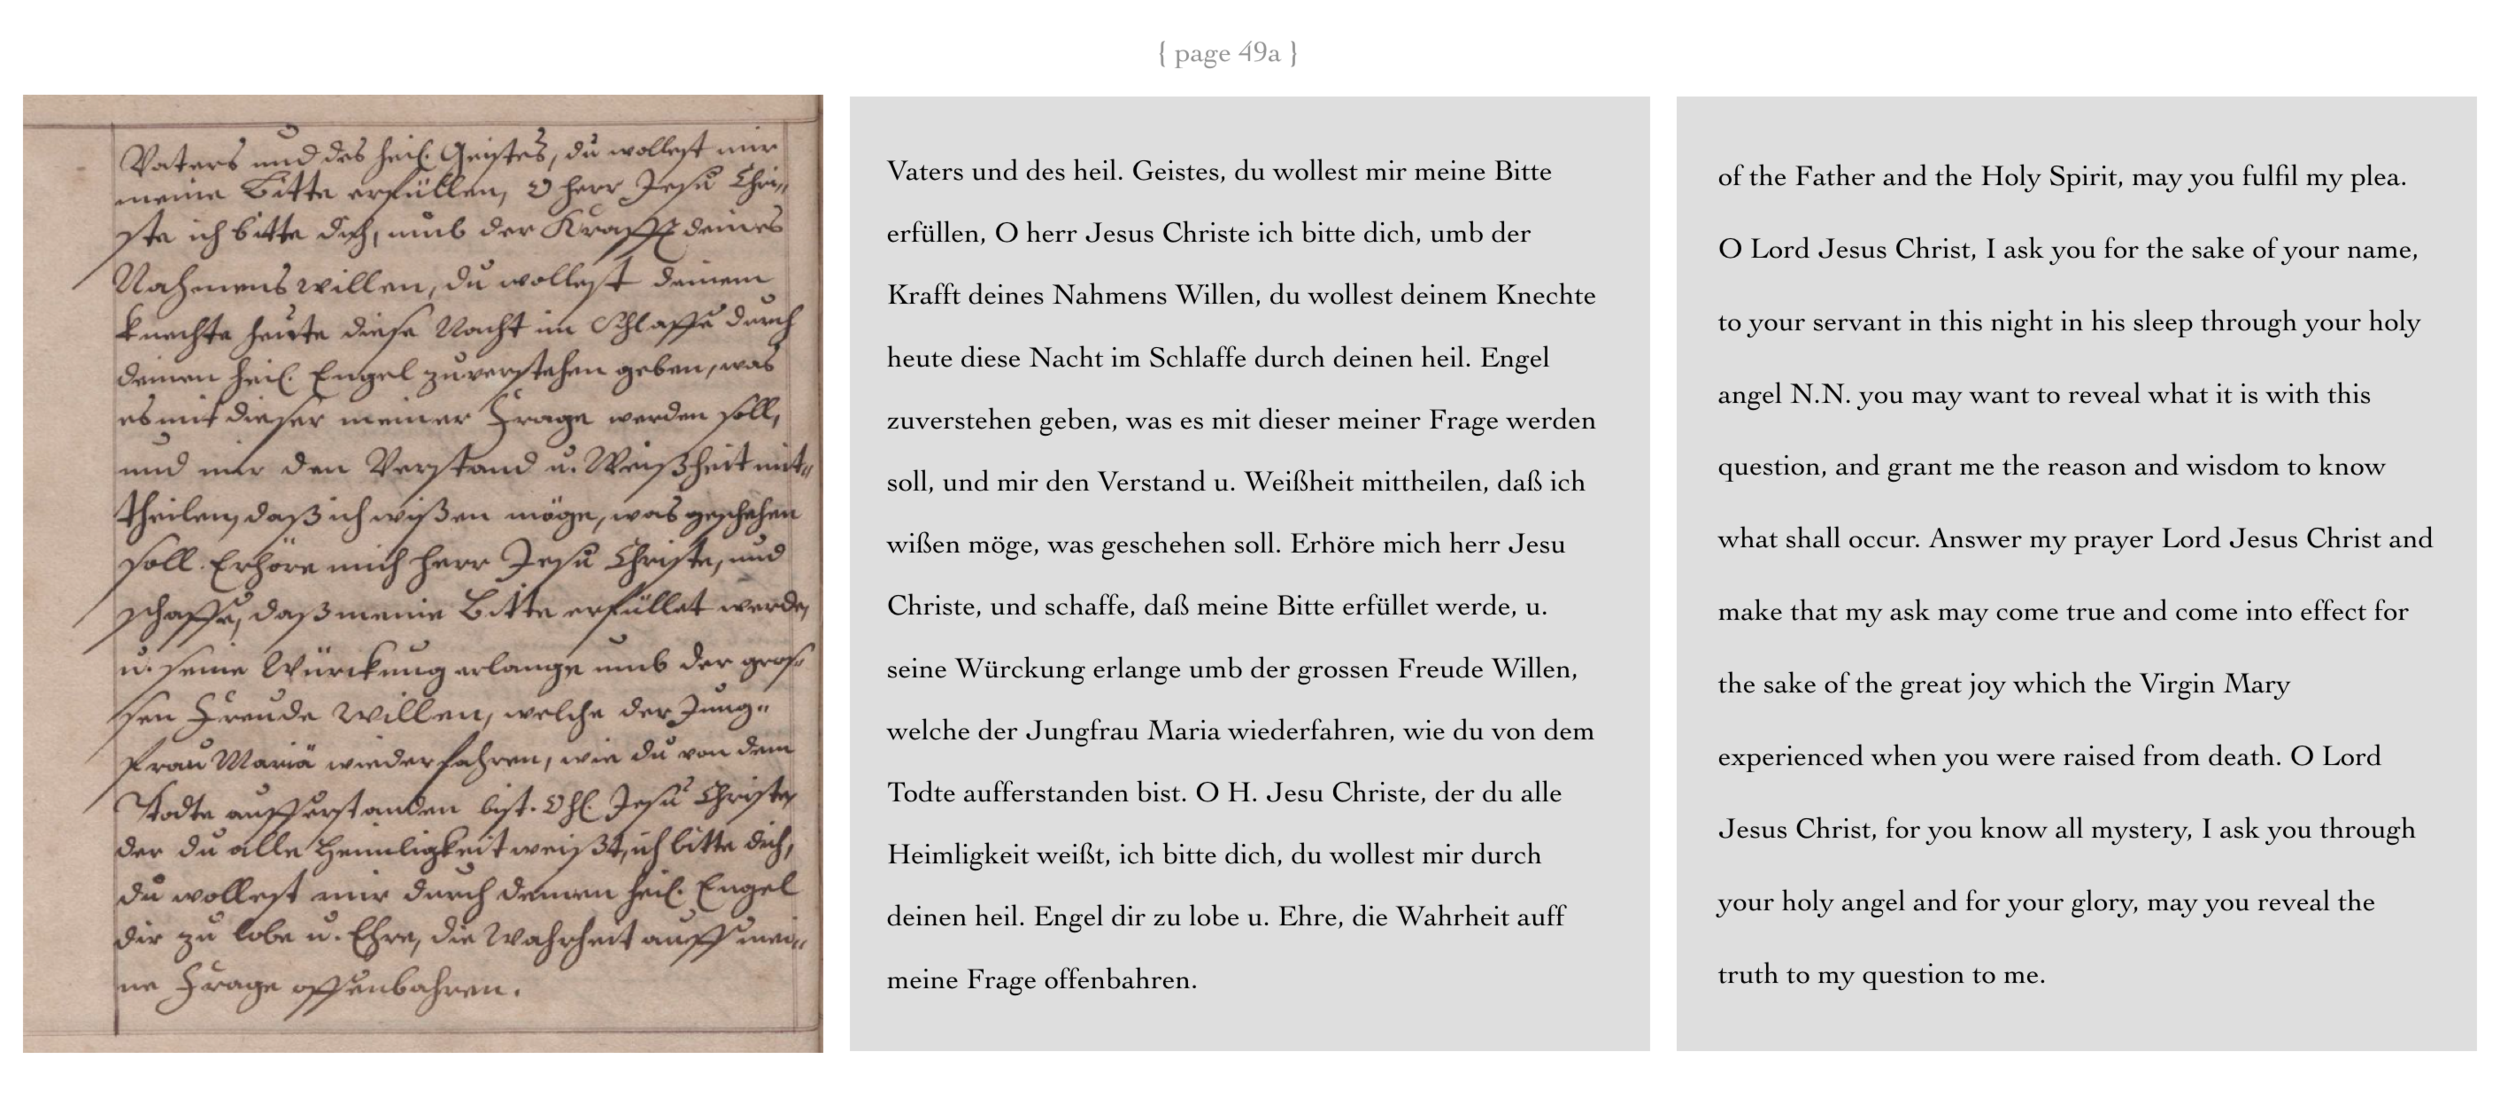 { page 49a }
Vaters und des heil. Geistes, du wollest mir
meine Bitte erfüllen, O herr Jesu Chri„
ste ich bitte dich, umb der Krafft deines
Nahmens willen, du wollest deinem
knechte heute diese Nacht im Schlaffe durch
deinen heil. Engel zuverstehen geben, was
es mit dieser meiner Frage werden soll,
und mir den Verstand u. Weißheit mit„
theilen, daß ich wißen möge, was geschehen
soll. Erhöre mich herr Jesu Christe, und
schaffe, daß meine Bitte erfüllet werde,
u. seine Würckung erlange umb der gros„
sen Freude willen, welche der Jung„
frau Mariä wiederfahren, wie du von dem
Todte aufferstanden bist. O H. Jesu Christe,
der du alle Heimligkeit weißt, ich bitte dich,
du wollest mir durch deinen heil. Engel
dir zu lobe u. Ehre, die Wahrheit auff mei„
ne Frage offenbahren.
Vaters und des heil. Geistes, du wollest mir meine Bitte
erfüllen, O herr Jesus Christe ich bitte dich, umb der
Krafft deines Nahmens Willen, du wollest deinem Knechte
heute diese Nacht im Schlaffe durch deinen heil. Engel
zuverstehen geben, was es mit dieser meiner Frage werden
soll, und mir den Verstand u. Weißheit mittheilen, daß ich
wißen möge, was geschehen soll. Erhöre mich herr Jesu
Christe, und schaffe, daß meine Bitte erfüllet werde, u.
seine Würckung erlange umb der grossen Freude Willen,
welche der Jungfrau Maria wiederfahren, wie du von dem
Todte aufferstanden bist. O H. Jesu Christe, der du alle
Heimligkeit weißt, ich bitte dich, du wollest mir durch
deinen heil. Engel dir zu lobe u. Ehre, die Wahrheit auff
meine Frage offenbahren.
of the Father and the Holy Spirit, may you fulfil my plea.
O Lord Jesus Christ, I ask you for the sake of your name,
to your servant in this night in his sleep through your holy
angel N.N. you may want to reveal what it is with this
question, and grant me the reason and wisdom to know
what shall occur. Answer my prayer Lord Jesus Christ and
make that my ask may come true and come into effect for
the sake of the great joy which the Virgin Mary
experienced when you were raised from death. O Lord
Jesus Christ, for you know all mystery, I ask you through
your holy angel and for your glory, may you reveal the
truth to my question to me.